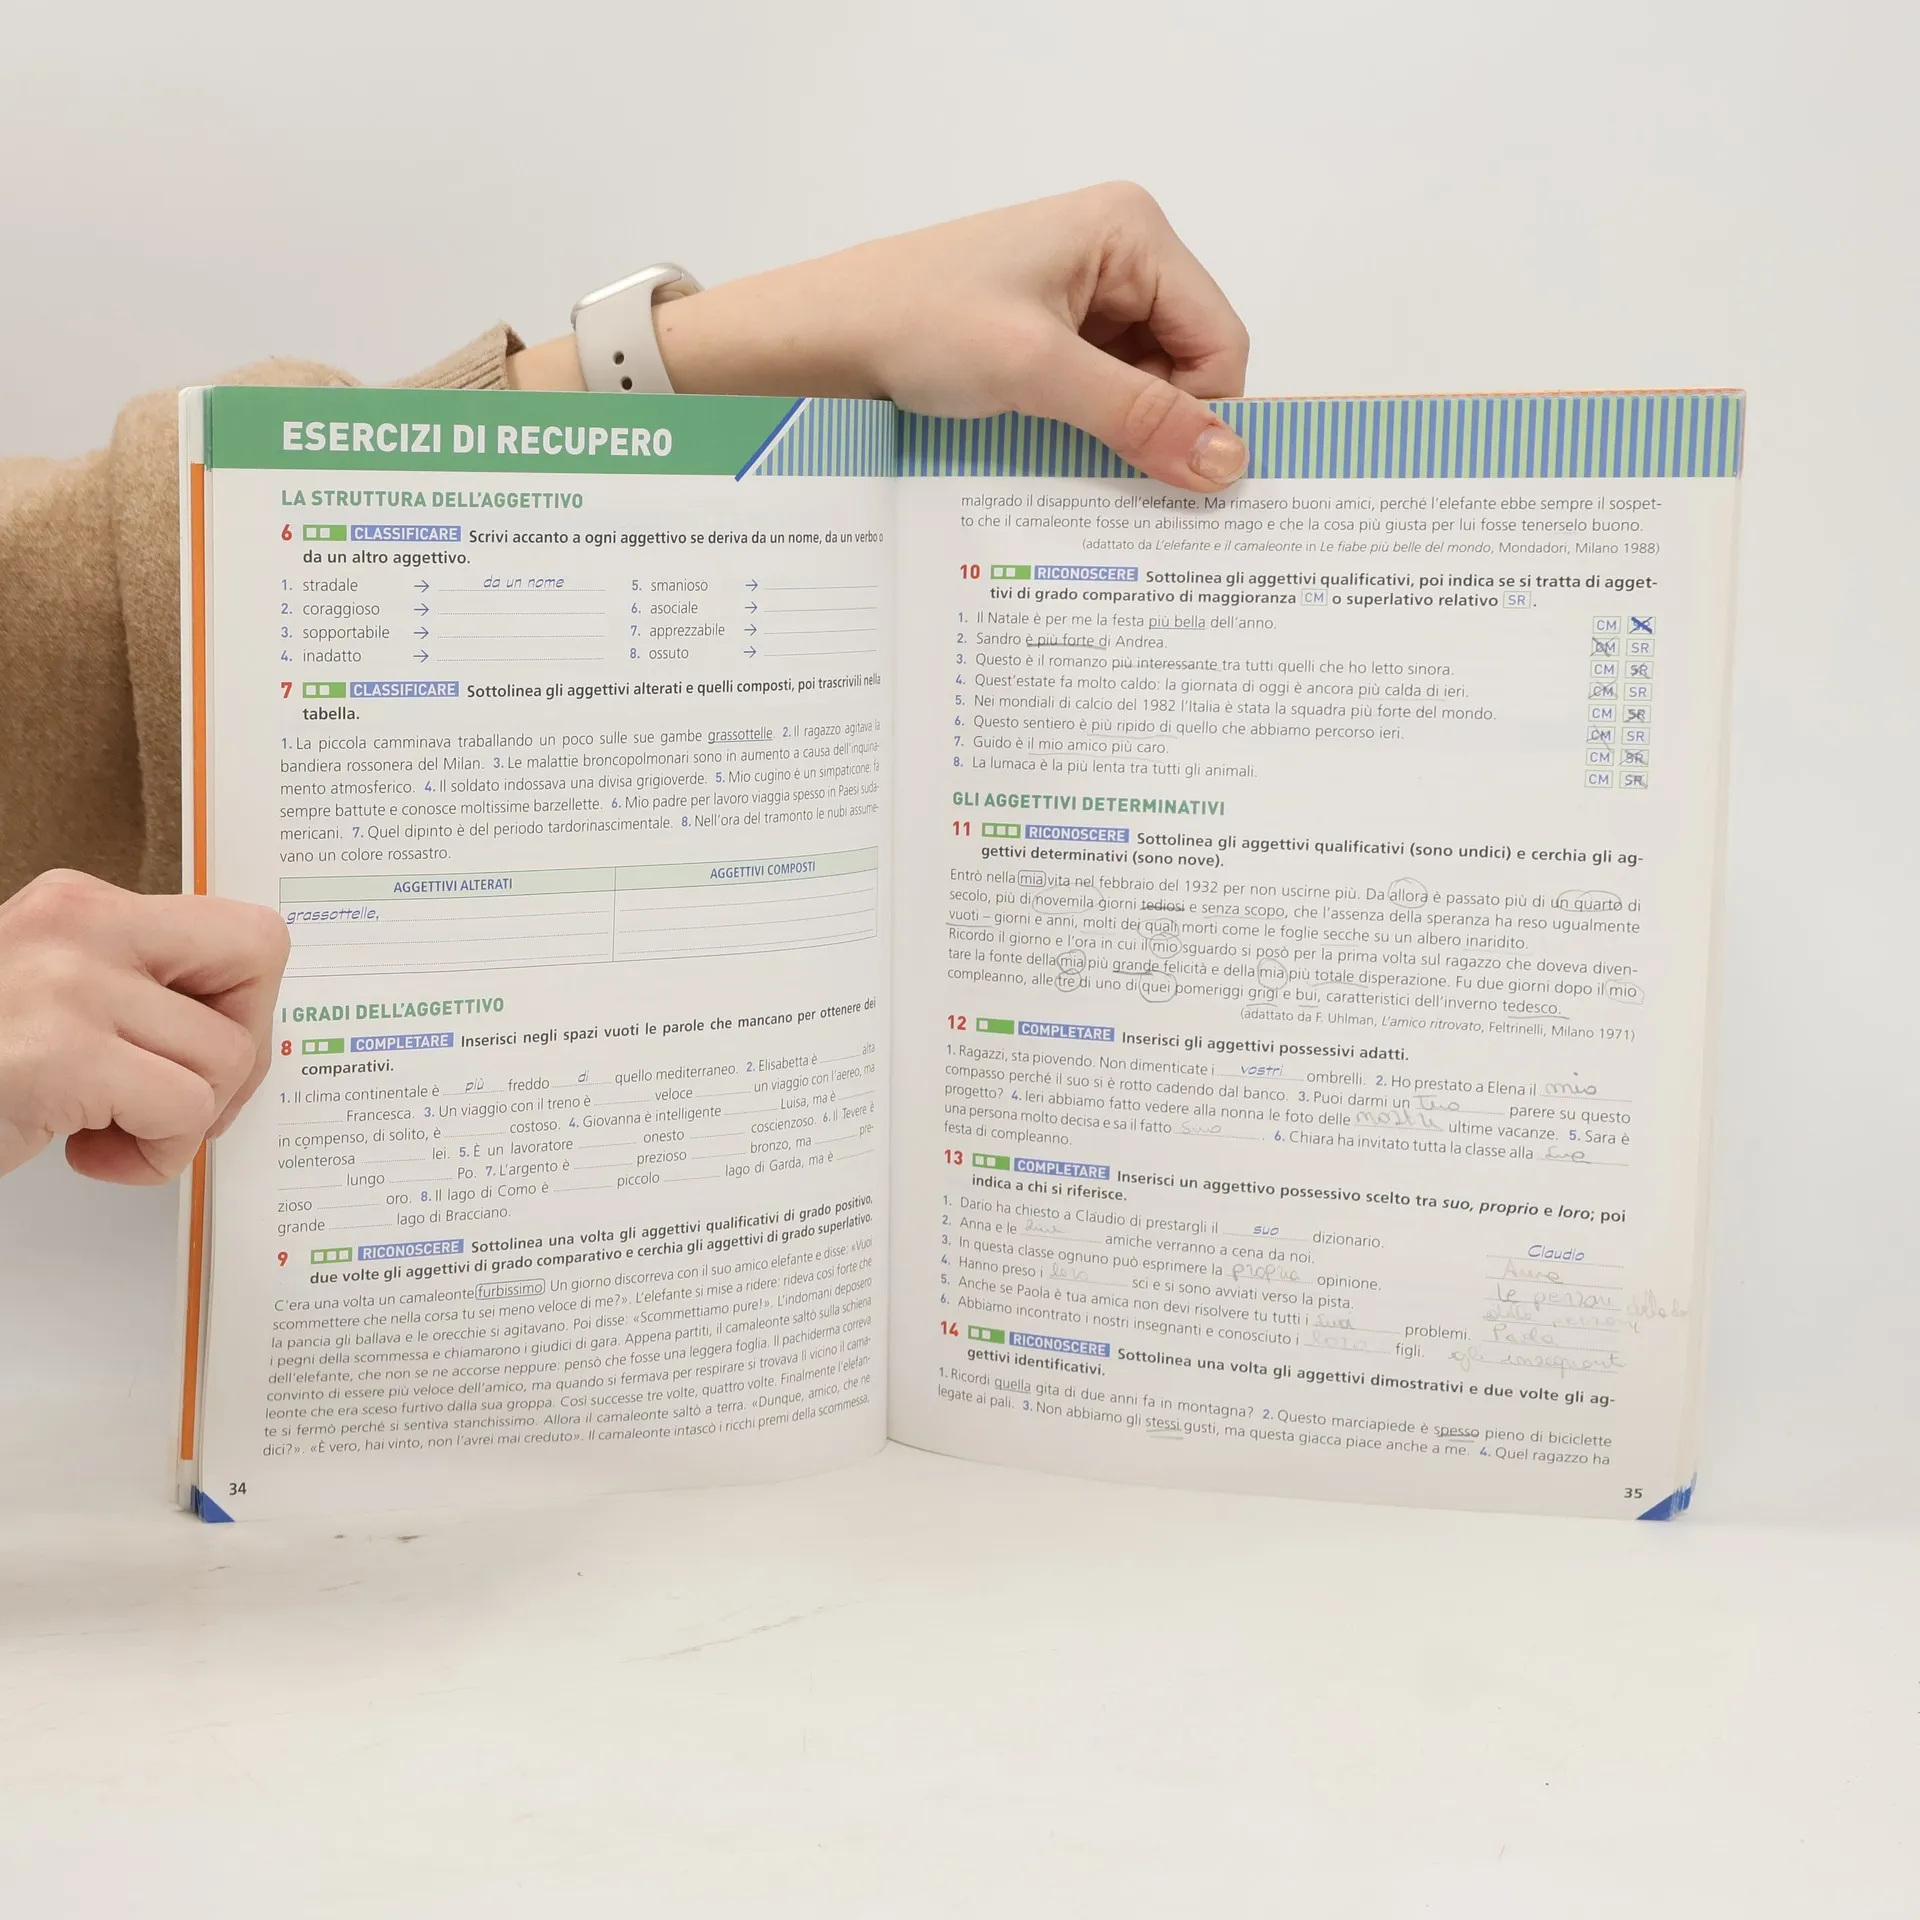 ESERCIZI DI RECUPERO
LA STRUTTURA DELL'AGGETTIVO
6 CLASSIFICARE Scrivi accanto a ogni aggettivo se deriva da un nome, da un verbo o
da un altro aggettivo.
1. stradale → da un nome 5. smanioso →
2. coraggioso → 6. asociale →
3. sopportabile → 7. apprezzabile →
4. inadatto → 8. ossuto →
7 CLASSIFICARE Sottolinea gli aggettivi alterati e quelli composti, poi trascrivili nella
tabella.
1. La piccola camminava traballando un poco sulle sue gambe grassottelle. 2. Il ragazzo agitava la
bandiera rossonera del Milan. 3. Le malattie broncopolmonari sono in aumento a causa dell'inquina-
mento atmosferico. 4. Il soldato indossava una divisa grigioverde. 5. Mio cugino è un simpaticone: fa
sempre battute e conosce moltissime barzellette. 6. Mio padre per lavoro viaggia spesso in Paesi suda-
mericani. 7. Quel dipinto è del periodo tardorinascimentale. 8. Nell'ora del tramonto le nubi assume-
vano un colore rossastro.
AGGETTIVI ALTERATI AGGETTIVI COMPOSTI
grassottelle,
I GRADI DELL'AGGETTIVO
8 COMPLETARE Inserisci negli spazi vuoti le parole che mancano per ottenere dei
comparativi.
1. Il clima continentale è più freddo di quello mediterraneo. 2. Elisabetta è alta
Francesca. 3. Un viaggio con il treno è veloce un viaggio con l'aereo, ma
in compenso, di solito, è costoso. 4. Giovanna è intelligente Luisa, ma è
volenterosa lei. 5. È un lavoratore onesto coscienzoso. 6. Il Tevere è
lungo Po. 7. L'argento è prezioso bronzo, ma pre-
zioso oro. 8. Il lago di Como è piccolo lago di Garda, ma è
grande lago di Bracciano.
9 RICONOSCERE Sottolinea una volta gli aggettivi qualificativi di grado positivo,
due volte gli aggettivi di grado comparativo e cerchia gli aggettivi di grado superlativo.
C'era una volta un camaleonte furbissimo Un giorno discorreva con il suo amico elefante e disse: «Vuoi
scommettere che nella corsa tu sei meno veloce di me?». L'elefante si mise a ridere: rideva così forte che
la pancia gli ballava e le orecchie si agitavano. Poi disse: «Scommettiamo pure!». L'indomani deposero
i pegni della scommessa e chiamarono i giudici di gara. Appena partiti, il camaleonte saltò sulla schiena
dell'elefante, che non se ne accorse neppure: pensò che fosse una leggera foglia. Il pachiderma correva
convinto di essere più veloce dell'amico, ma quando si fermava per respirare si trovava lì vicino il cama-
leonte che era sceso furtivo dalla sua groppa. Così successe tre volte, quattro volte. Finalmente l'elefan-
te si fermò perché si sentiva stanchissimo. Allora il camaleonte saltò a terra. «Dunque, amico, che ne
dici?». «È vero, hai vinto, non l'avrei mai creduto». Il camaleonte intascò i ricchi premi della scommessa,
34
malgrado il disappunto dell'elefante. Ma rimasero buoni amici, perché l'elefante ebbe sempre il sospet-
to che il camaleonte fosse un abilissimo mago e che la cosa più giusta per lui fosse tenerselo buono.
(adattato da L'elefante e il camaleonte in Le fiabe più belle del mondo, Mondadori, Milano 1988)
10 RICONOSCERE Sottolinea gli aggettivi qualificativi, poi indica se si tratta di agget-
tivi di grado comparativo di maggioranza CM o superlativo relativo SR.
1. Il Natale è per me la festa più bella dell'anno. CM SR
2. Sandro è più forte di Andrea. CM SR
3. Questo è il romanzo più interessante tra tutti quelli che ho letto sinora. CM SR
4. Quest'estate fa molto caldo: la giornata di oggi è ancora più calda di ieri. CM SR
5. Nei mondiali di calcio del 1982 l'Italia è stata la squadra più forte del mondo. CM SR
6. Questo sentiero è più ripido di quello che abbiamo percorso ieri. CM SR
7. Guido è il mio amico più caro. CM SR
8. La lumaca è la più lenta tra tutti gli animali. CM SR
GLI AGGETTIVI DETERMINATIVI
11 RICONOSCERE Sottolinea gli aggettivi qualificativi (sono undici) e cerchia gli ag-
gettivi determinativi (sono nove).
Entrò nella mia vita nel febbraio del 1932 per non uscirne più. Da allora è passato più di un quarto di
secolo, più di novemila giorni tediosi e senza scopo, che l'assenza della speranza ha reso ugualmente
vuoti – giorni e anni, molti dei quali morti come le foglie secche su un albero inaridito.
Ricordo il giorno e l'ora in cui il mio sguardo si posò per la prima volta sul ragazzo che doveva diven-
tare la fonte della mia più grande felicità e della mia più totale disperazione. Fu due giorni dopo il mio
compleanno, alle tre di uno di quei pomeriggi grigi e bui, caratteristici dell'inverno tedesco.
(adattato da F. Uhlman, L'amico ritrovato, Feltrinelli, Milano 1971)
12 COMPLETARE Inserisci gli aggettivi possessivi adatti.
1. Ragazzi, sta piovendo. Non dimenticate i vostri ombrelli. 2. Ho prestato a Elena il mio
compasso perché il suo si è rotto cadendo dal banco. 3. Puoi darmi un tuo parere su questo
progetto? 4. Ieri abbiamo fatto vedere alla nonna le foto delle nostre ultime vacanze. 5. Sara è
una persona molto decisa e sa il fatto suo. 6. Chiara ha invitato tutta la classe alla sua
festa di compleanno.
13 COMPLETARE Inserisci un aggettivo possessivo scelto tra suo, proprio e loro; poi
indica a chi si riferisce.
1. Dario ha chiesto a Claudio di prestargli il suo dizionario. Claudio
2. Anna e le sue amiche verranno a cena da noi. Anna
3. In questa classe ognuno può esprimere la propria opinione. le persone della
4. Hanno preso i loro sci e si sono avviati verso la pista.
5. Anche se Paola è tua amica non devi risolvere tu tutti i suoi problemi. Paola
6. Abbiamo incontrato i nostri insegnanti e conosciuto i loro figli. gli insegnanti
14 RICONOSCERE Sottolinea una volta gli aggettivi dimostrativi e due volte gli ag-
gettivi identificativi.
1. Ricordi quella gita di due anni fa in montagna? 2. Questo marciapiede è spesso pieno di biciclette
legate ai pali. 3. Non abbiamo gli stessi gusti, ma questa giacca piace anche a me. 4. Quel ragazzo ha
35